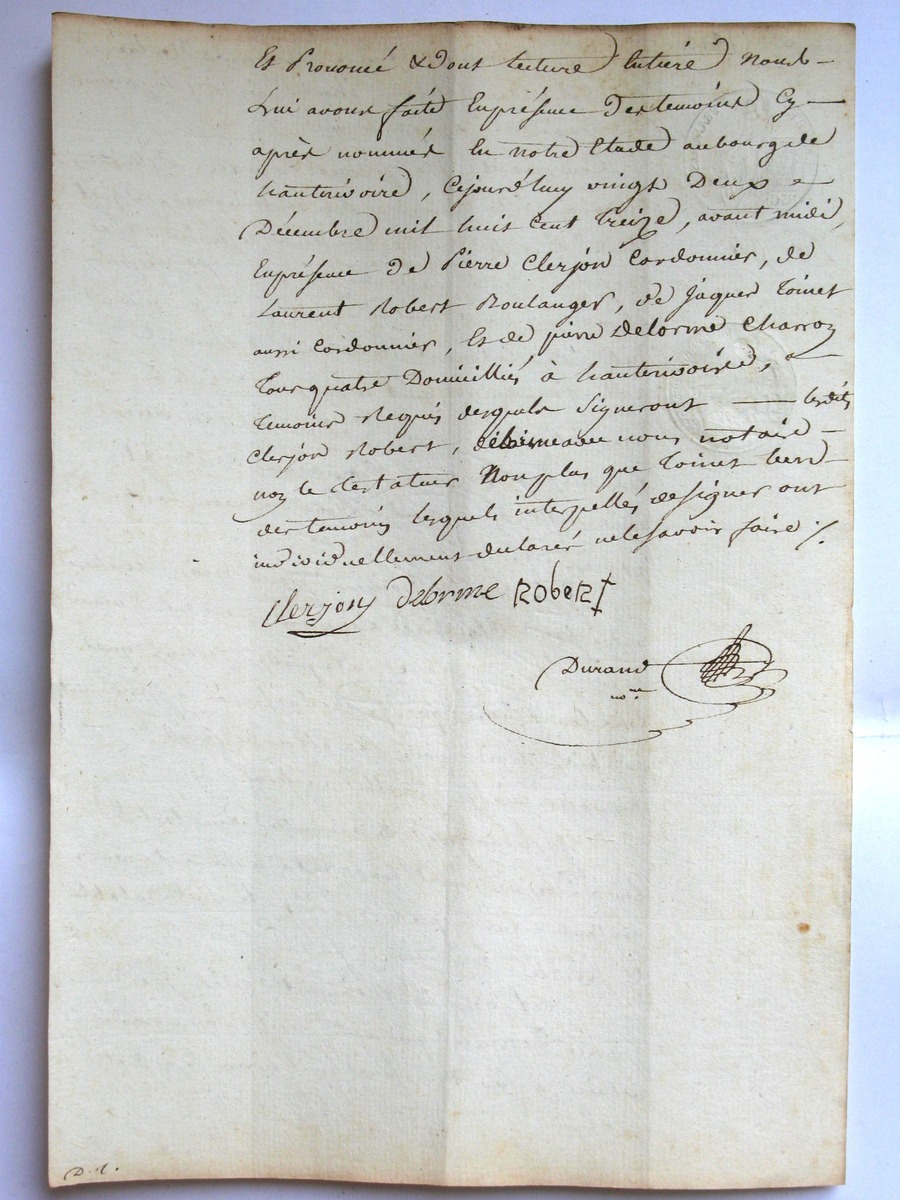 Et Prononcé & dont lecture Entiére Nous
Lui avons faite Enprésence Destemoins Cy
après nommés En notre Etude aubourg de
hauterivoire, Cejourd'huy vingt Deux
Décembre mil huit cent treize, avant midi,
Enprésence De Pierre Clerjon Cordonnier, de
Laurent Robert Boulanger, de Jaques Toinet
aussi Cordonnier, Et de pierre Delorme Charron
Tous quatre Domicilliés à hauterivoire,
temoins Requis desquels Signeront lesdits
Clerjon Robert, delorme avec nous notaire
non le testateur Nonplus que Toinet l'un
des temoins lesquels interpellés designer ont
individuellement declarés nelesavoir faire ./.
Clerjon delorme RobeRt
Durand
nore
D. 1.